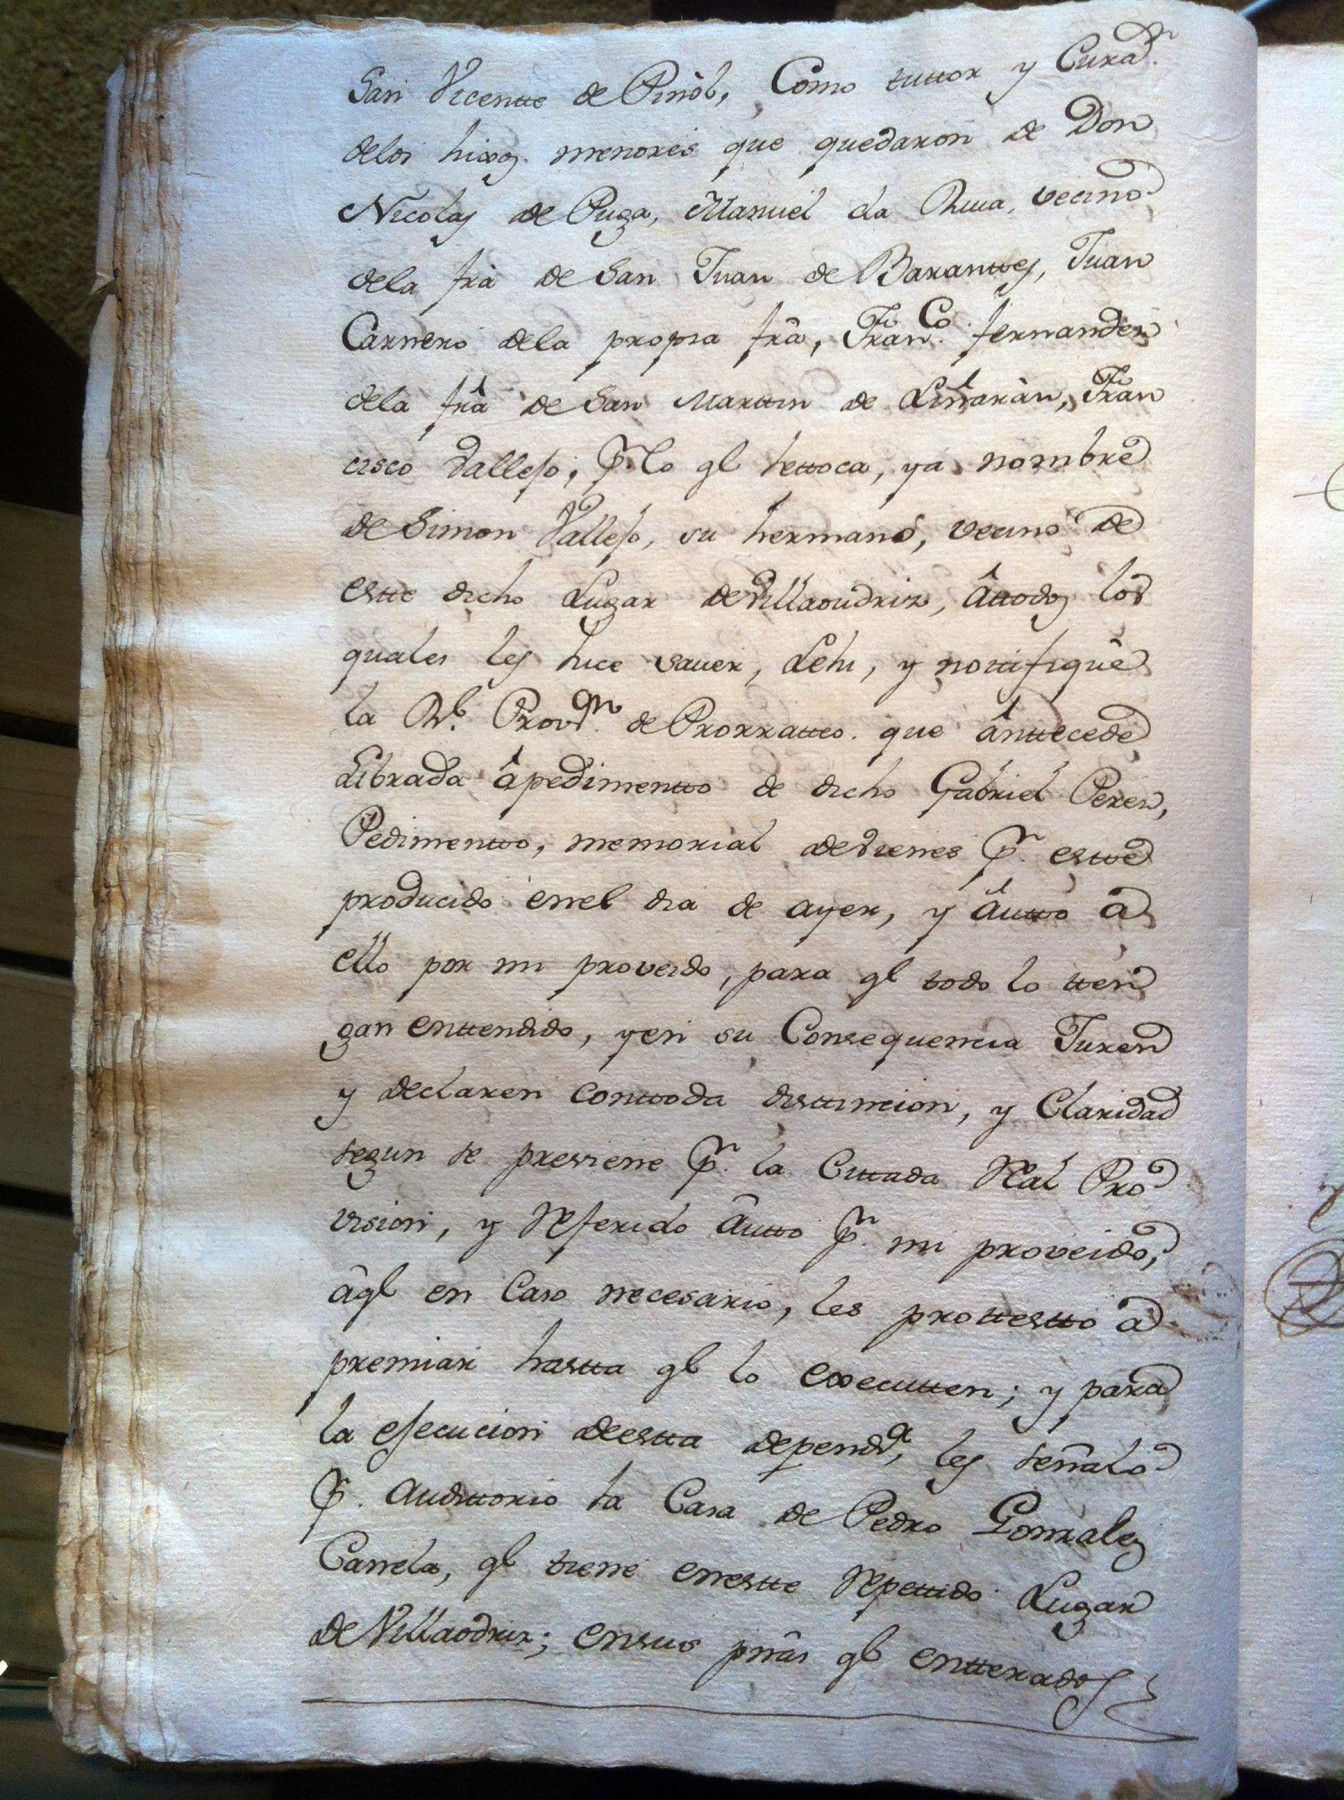 San Vicentte de Piñòl, Como tuttor y Curad.r
delos hixos menores que quedaron de Don
Nicolas de Puga, Manuel da Riua, vecino
dela frâ de San Juan de Baranttes, Juan
Carnero dela propia frâ, Fran.co fernandez
dela frâ de San Marttin de Liñaràn, Fran
cisco Vallejo, p.r lo q.l lettoca, ya nombre
de Simon Vallejo, su hermano, vecino de
estte dicho Lugar deVillaoudriz, âttodos los
quales les hice sauer, Lehi, y nottifiquê
la R.l Prov.on de Prorratteo que ânttecede
Librada âpedimentto de dicho Gabriel Perez,
Pedimentto, memorial deVienes p.r estte
producido enel dia de ayer, y âutto a
ello por mi proveido, para q.l todo lo tten
gan enttendido, yen su Consequencia Juren
y declaren conttoda disttincion, y Claridad
segun se previene p.r la Cittada Real Pro
vision, y Referido âutto p.r mi proveido,
âq.l en Caso necesario, les prottestto a
premiar hastta q.l lo executten; y para
la ejecucion deestta depend.a, les señalo
p.r audittorio la Casa de Pedro Gonzalez
Canela, q.l tiene enestte Repettido Lugar
deVillaodriz; ensus prâs q.l entterados